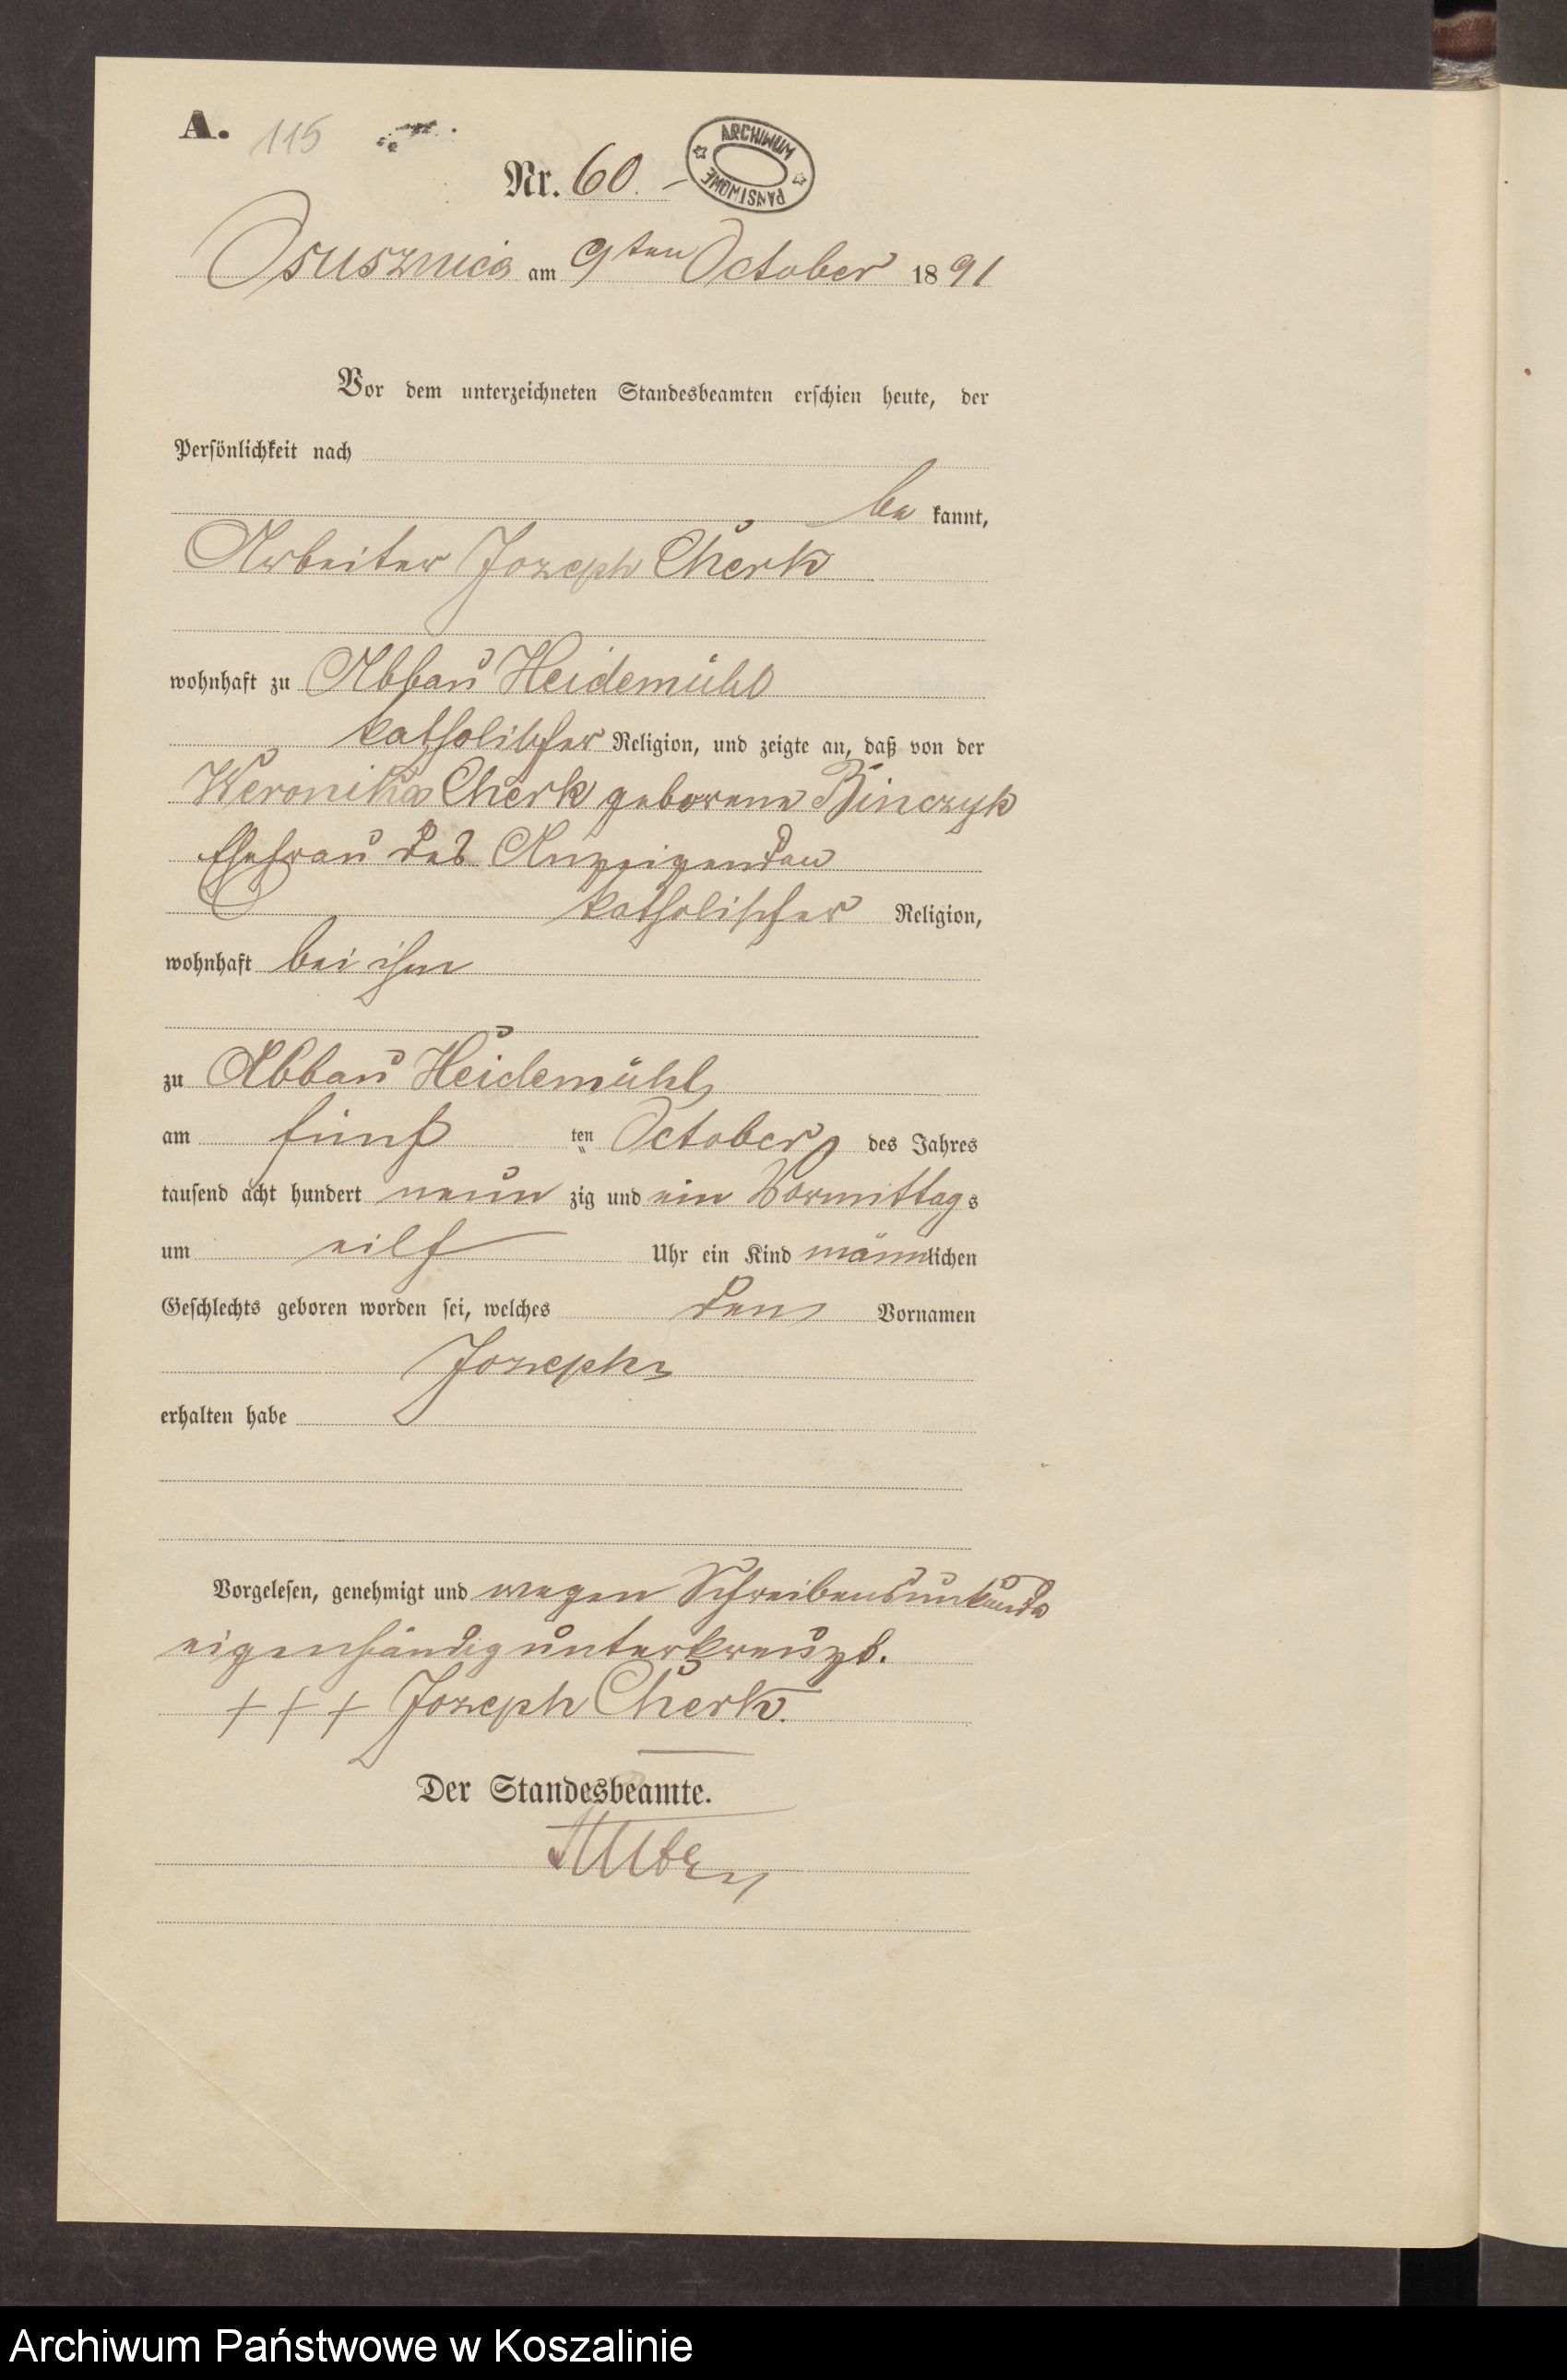 A. 115
Nr. 60.
ARCHIWUM PAŃSTWOWE
Osusznica am 9ten October 1891
Vor dem unterzeichneten Standesbeamten erschien heute, der
Persönlichkeit nach
be kannt,
Arbeiter Jozeph Cherk
wohnhaft zu Abbau Heidemühl
katholischer Religion, und zeigte an, daß von der
Weronika Cherk geborene Binczyk
Ehefrau des Anzeigenden
katholischer Religion,
wohnhaft bei ihm
zu Abbau Heidemühl
am fünf ten October des Jahres
tausend acht hundert neun zig und ein Vormittags
um eilf Uhr ein Kind männlichen
Geschlechts geboren worden sei, welches den Vornamen
Jozeph
erhalten habe
Vorgelesen, genehmigt und wegen Schreibensunkunde
eigenhändig unterkreuzt.
+ + + Jozeph Cherk.
Der Standesbeamte.
Archiwum Państwowe w Koszalinie